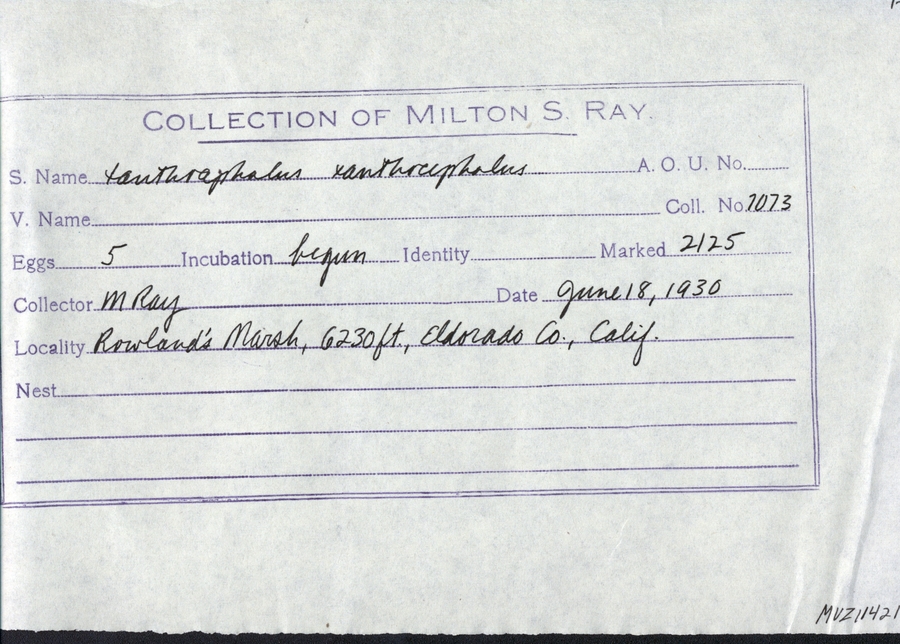 COLLECTION OF MILTON S. RAY.
S. Name xanthocephalus xanthocephalus A. O. U. No.
V. Name Coll. No. 7073
Eggs 5 Incubation begun Identity Marked 2/25
Collector M Ray Date June 18, 1930
Locality Rowland's Marsh, 6230 ft., Eldorado Co., Calif.
Nest